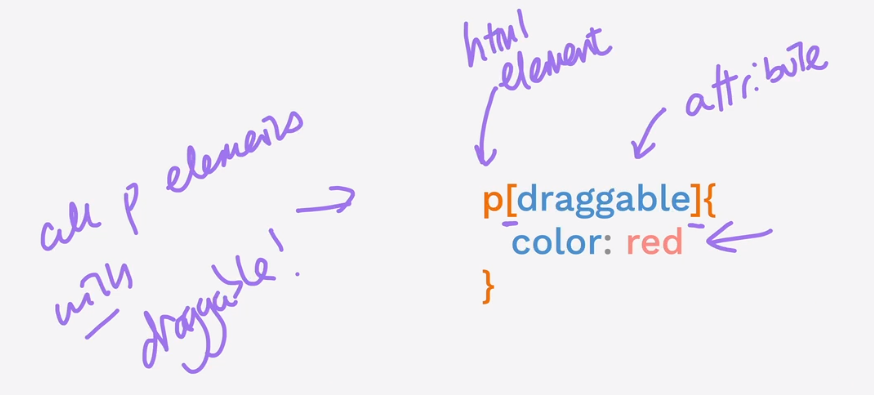 html
element
attribute
all p elements
with
draggable!
p[draggable]{
color: red
}